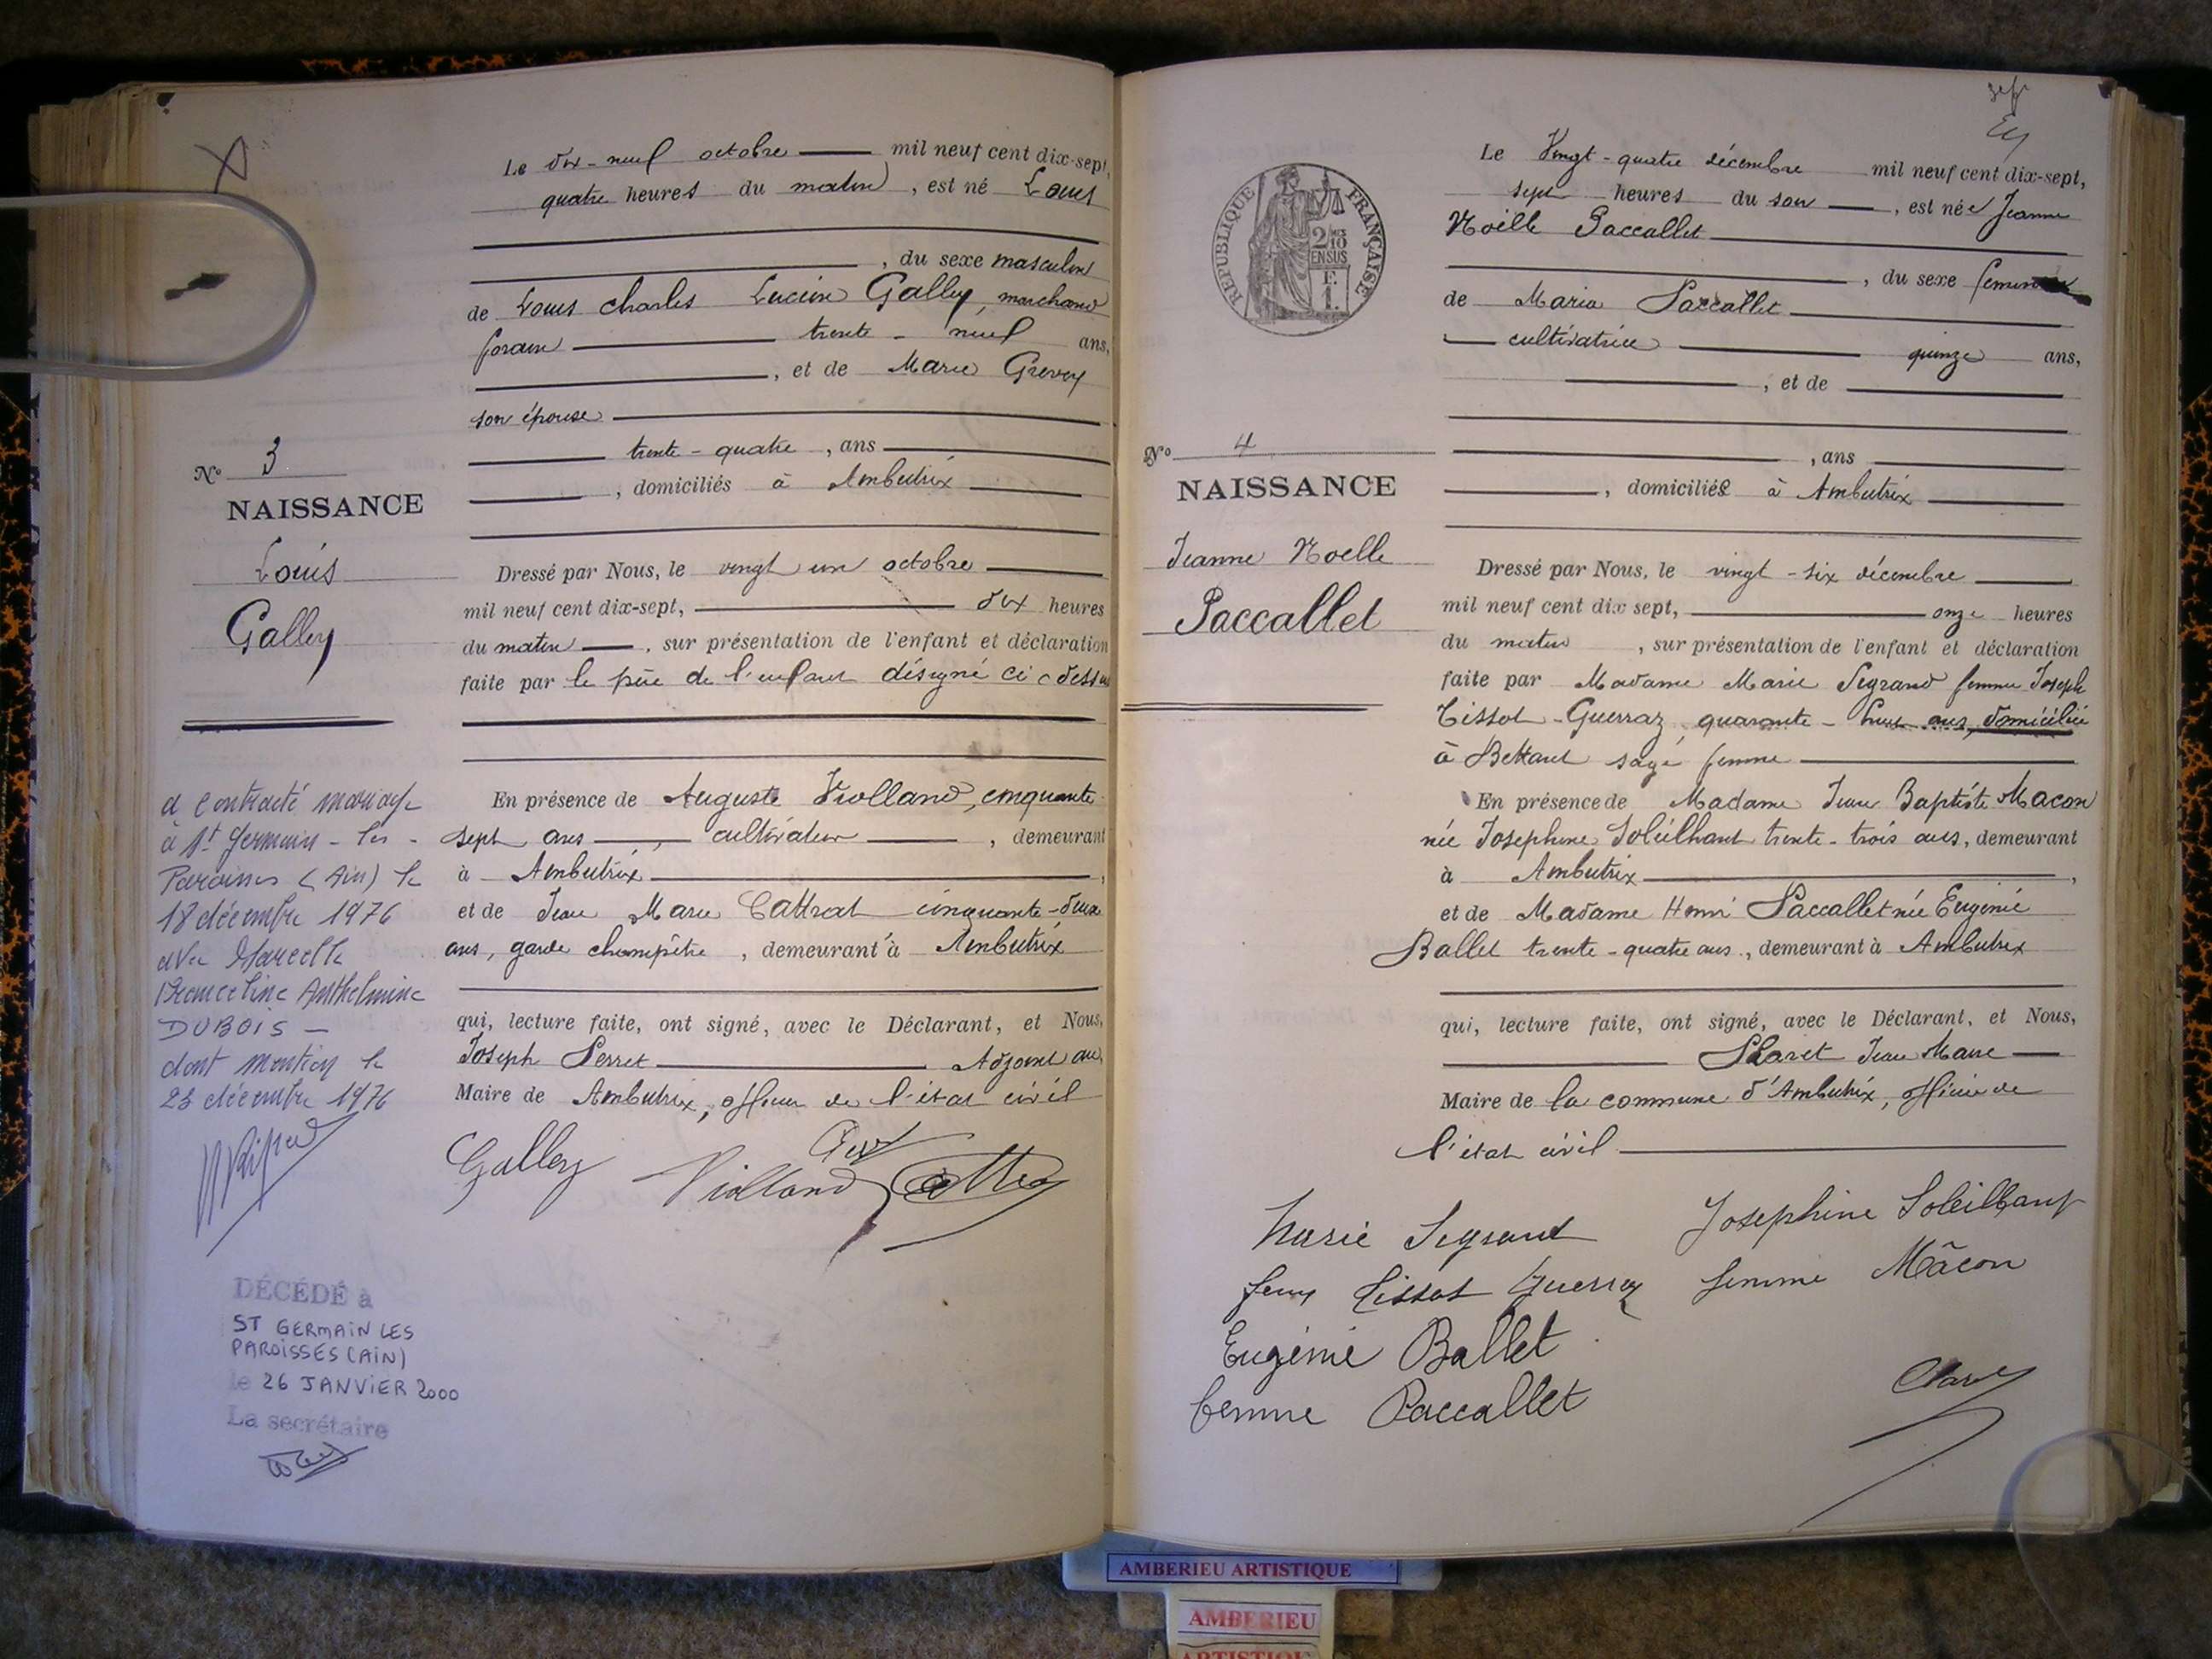 Le dix-neuf octobre mil neuf cent dix-sept,
quatre heures du matin, est né Louis
, du sexe masculin
de Louis Charles Lucien Galley, marchand
forain trente-neuf ans,
, et de Marie Grevoy
son épouse
trente-quatre, ans
, domiciliés à Ambutrix
N° 3
NAISSANCE
Louis
Galley
Dressé par Nous, le vingt un octobre
mil neuf cent dix-sept, dix heures
du matin, sur présentation de l'enfant et déclaration
faite par le père de l'enfant désigné ci-dessus
En présence de Auguste Violland, cinquante
sept ans, cultivateur, demeurant
à Ambutrix,
et de Jean Marie Cattrat cinquante-deux
ans, garde champêtre, demeurant à Ambutrix
qui, lecture faite, ont signé, avec le Déclarant, et Nous,
Joseph Perret Adjoint au
Maire de Ambutrix, officier de l'état civil
Galley Violland
a contracté mariage
à St Germain-les-
Paroisses (Ain) le
18 décembre 1976
avec Marcelle
Franceline Anthelmine
DUBOIS —
dont mention le
23 décembre 1976
DÉCÉDÉ à
ST GERMAIN LES
PAROISSES (AIN)
le 26 JANVIER 2000
La secrétaire
Le Vingt-quatre décembre mil neuf cent dix-sept,
sept heures du soir, est née Jeanne
Noëlle Paccallet
, du sexe féminin
de Maria Paccallet
cultivatrice quinze ans,
, et de
, ans
, domiciliée à Ambutrix
REPUBLIQUE FRANÇAISE
2/10 EN SUS
F.
1.
N° 4
NAISSANCE
Jeanne Noelle
Paccallet
Dressé par Nous, le vingt-six décembre
mil neuf cent dix sept, onze heures
du matin, sur présentation de l'enfant et déclaration
faite par Madame Marie Segrand femme Joseph
Tissot-Guerraz, quarante-huit ans, domiciliée
à Bettant sage femme
En présence de Madame Jean Baptiste Macon
née Josephine Soleilhant trente-trois ans, demeurant
à Ambutrix,
et de Madame Henri Paccallet née Eugénie
Ballet trente-quatre ans, demeurant à Ambutrix
qui, lecture faite, ont signé, avec le Déclarant, et Nous,
Jean Marie
Maire de la commune d'Ambutrix, officier de
l'état civil
Marie Segrand Josephine Soleilhant
fem Tissot Guerraz femme Mâcon
Eugénie Ballet
femme Paccallet
AMBERIEU ARTISTIQUE
AMBERIEU
ARTISTIQUE